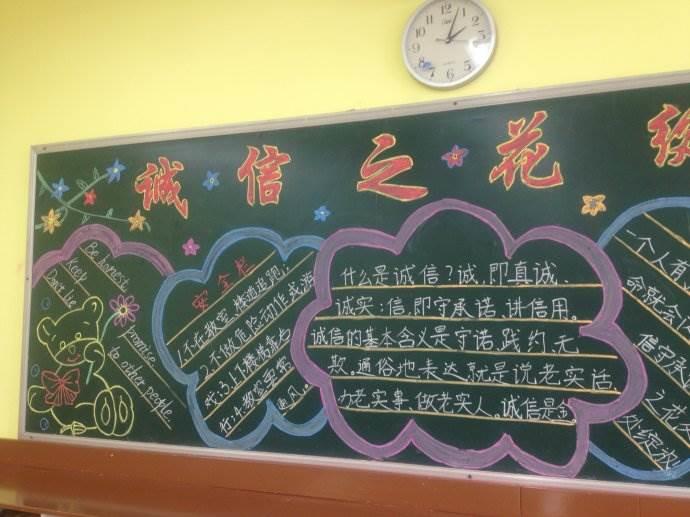 诚信之花绽
Be honest
Keep
Don't lie
promise
to other people.
安全栏
1.不在教室、楼道追跑,
2.不做危险动作或游
戏;3.上下楼梯靠右
行;4.教室要常
通风
什么是诚信?诚,即真诚、
诚实;信,即守承诺、讲信用。
诚信的基本含义是守诺、践约、无
欺。通俗地表达,就是说老实话、
办老实事、做老实人。诚信是金
一个人有
命就会
信守承
之花
处绽放